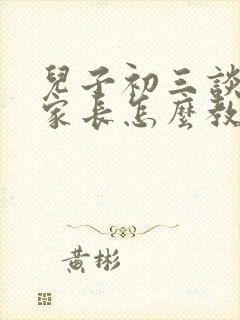 兒子初三談
家長怎麼教
黃彬